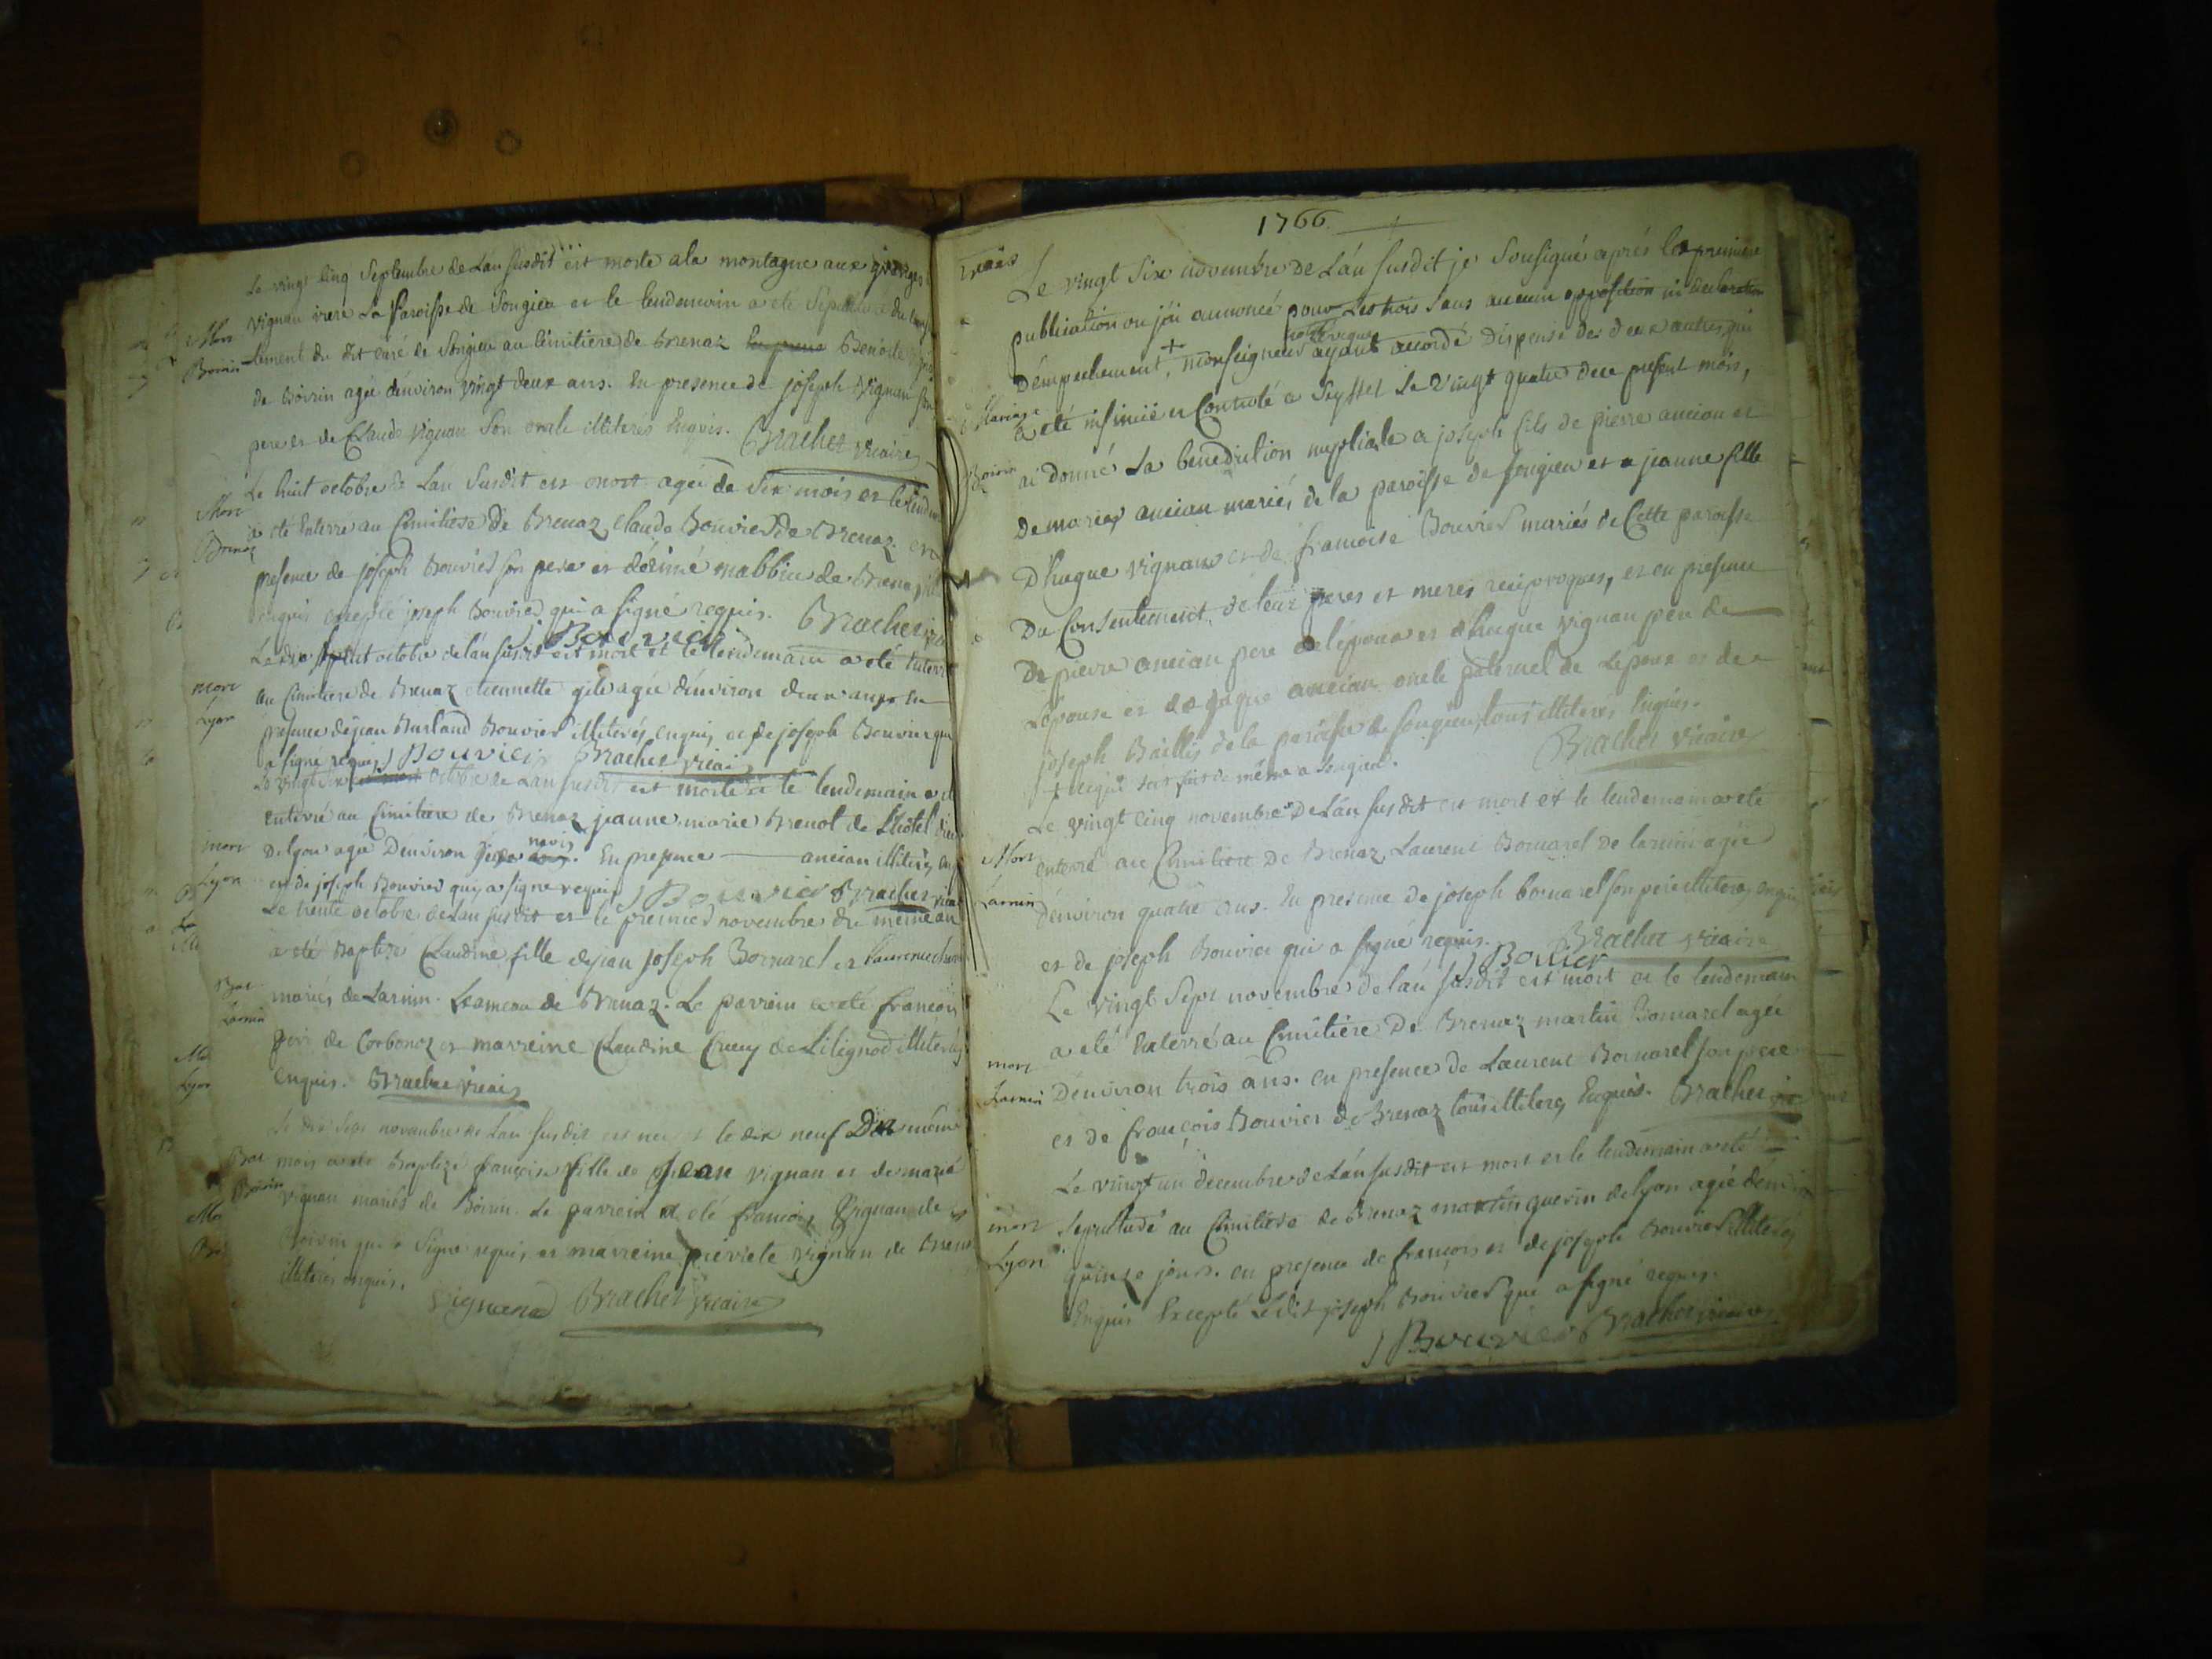 Le vingt cinq Septembre de Lan susdit est morte a la montagne aux
vignau riere La Paroisse de Songieu et le lendemain a été
Mort
Boirin
du dit curé de Songieu au cimitiere de Brenaz Benoite
de Boirin agée d'environ vingt deux ans. En presence de joseph Vignau son
pere et de Claude vignau son oncle illiterés Enquis. Brachet vicaire
Mort
Brenaz
Le huit octobre de Lan Susdit est mort agé de Six mois et le
a eté Enterré au Cimitiere de Brenaz Claude Bouvier de Brenaz en
presence de joseph Bouvier son pere et de mabbiu de Brenaz
enquis excepté joseph Bouvier qui a signé requis. Brachet
Bouvier
octobre de lán susdit est mort et le lendemain a eté Enterré
mort
Lyon
au Cimitiere de Brenaz etiennette agée d'environ deux ans En
presence de jean Burland Bouvier illiterés enquis et de joseph Bouvier qui
a signé requis J Bouvier Brachet vicair
Le vingt octobre de Lan susdit est morte et le lendemain a
mort
Lyon
enterré au Cimitiere de Brenaz jeanne marie Brenot de L'hôtel Dieu
de lyon agée Denviron mois. En presence ancian illiterés
et de joseph Bouvier qui a signé requis J Bouvier Brachet
Le trente octobre de Lan susdit et le premier novembre du même an
a eté Baptizé Claudine fille de jean joseph Bornarel et Laurence
Bat
Larnin
mariés de Larnin. hameau de Brenaz. Le parrein a eté francois
de Corbonoz et marreine Claudine de Lilignod illiterés
enquis. Brachet vicair
Le dix Sept novembre de Lan susdit est née et le dix neuf Du même
Bat
Boirin
mois a eté Baptizé françoise fille de Jean vignau et de marie
vignau mariés de Boirin. Le parrein a eté francois Vignau de
Boirin qui a Signé requis, et marreine pierrete vignau de
illiteres enquis. vignaud Brachet vicaire
1766
Le vingt Six novembre de Lán susdit je Sousigné aprés la premiere
publication ou jái annoncé pour Les trois Sans aucune opposition ni declaration
D'empechement, + Monseigneur notre eveque ayant accordé Dispense des deux autres qui
Mariage
Boirin
a eté insinuée et Controlé a Seyssel Le vingt quatre du present mois,
ai donné La benediction nuptiale a joseph fils de pierre ancian et
De marie ancian mariés, de la paroisse de songieu et a jeanne fille
D'hugue vignau et de francoise Bouvier mariés de Cette paroisse
Du Consentement de leur peres et meres reciproques, et en presence
De pierre ancian pere de lépoux et d'hugue vignau pere de
Lépouse et de ancian oncle paternel de Lépoux et de
joseph Baillis de la paroisse de songieu, tous illiteres Enquis.
+ même a songieu. Brachet vicaire
Mort
Larnin
Le vingt cinq novembre De Lán susdit est mort et le lendemain a eté
enterré au Cimitiere De Brenaz, Laurent Bornarel de larnin agée
d'environ quatre ans. En presence de joseph bornarel son pere illiteré, enquis
et de joseph Bouvier qui a signé requis. J Bouvier Brachet vicaire
Le vingt Sept novembre de lán susdit est mort et le lendemain
mort
Larnin
a eté Enterré au Cimitiere De Brenaz martin Bornarel agée
D'environ trois ans. en presence de Laurent Bornarel son pere
et de françois Bouvier de Brenaz tous illiterés Enquis. Brachet vic
Le vingt un decembre de Lán susdit est mort et le lendemain a eté
mort
Lyon
Sepulturé au Cimitiere de Brenaz martin guerin de lyon agée
quinze jours. en presence de francois et de joseph Bouvier illiterés
Enquis Excepté Ledit joseph Bouvier qui a signé requis.
J Bouvier Brachet vicaire